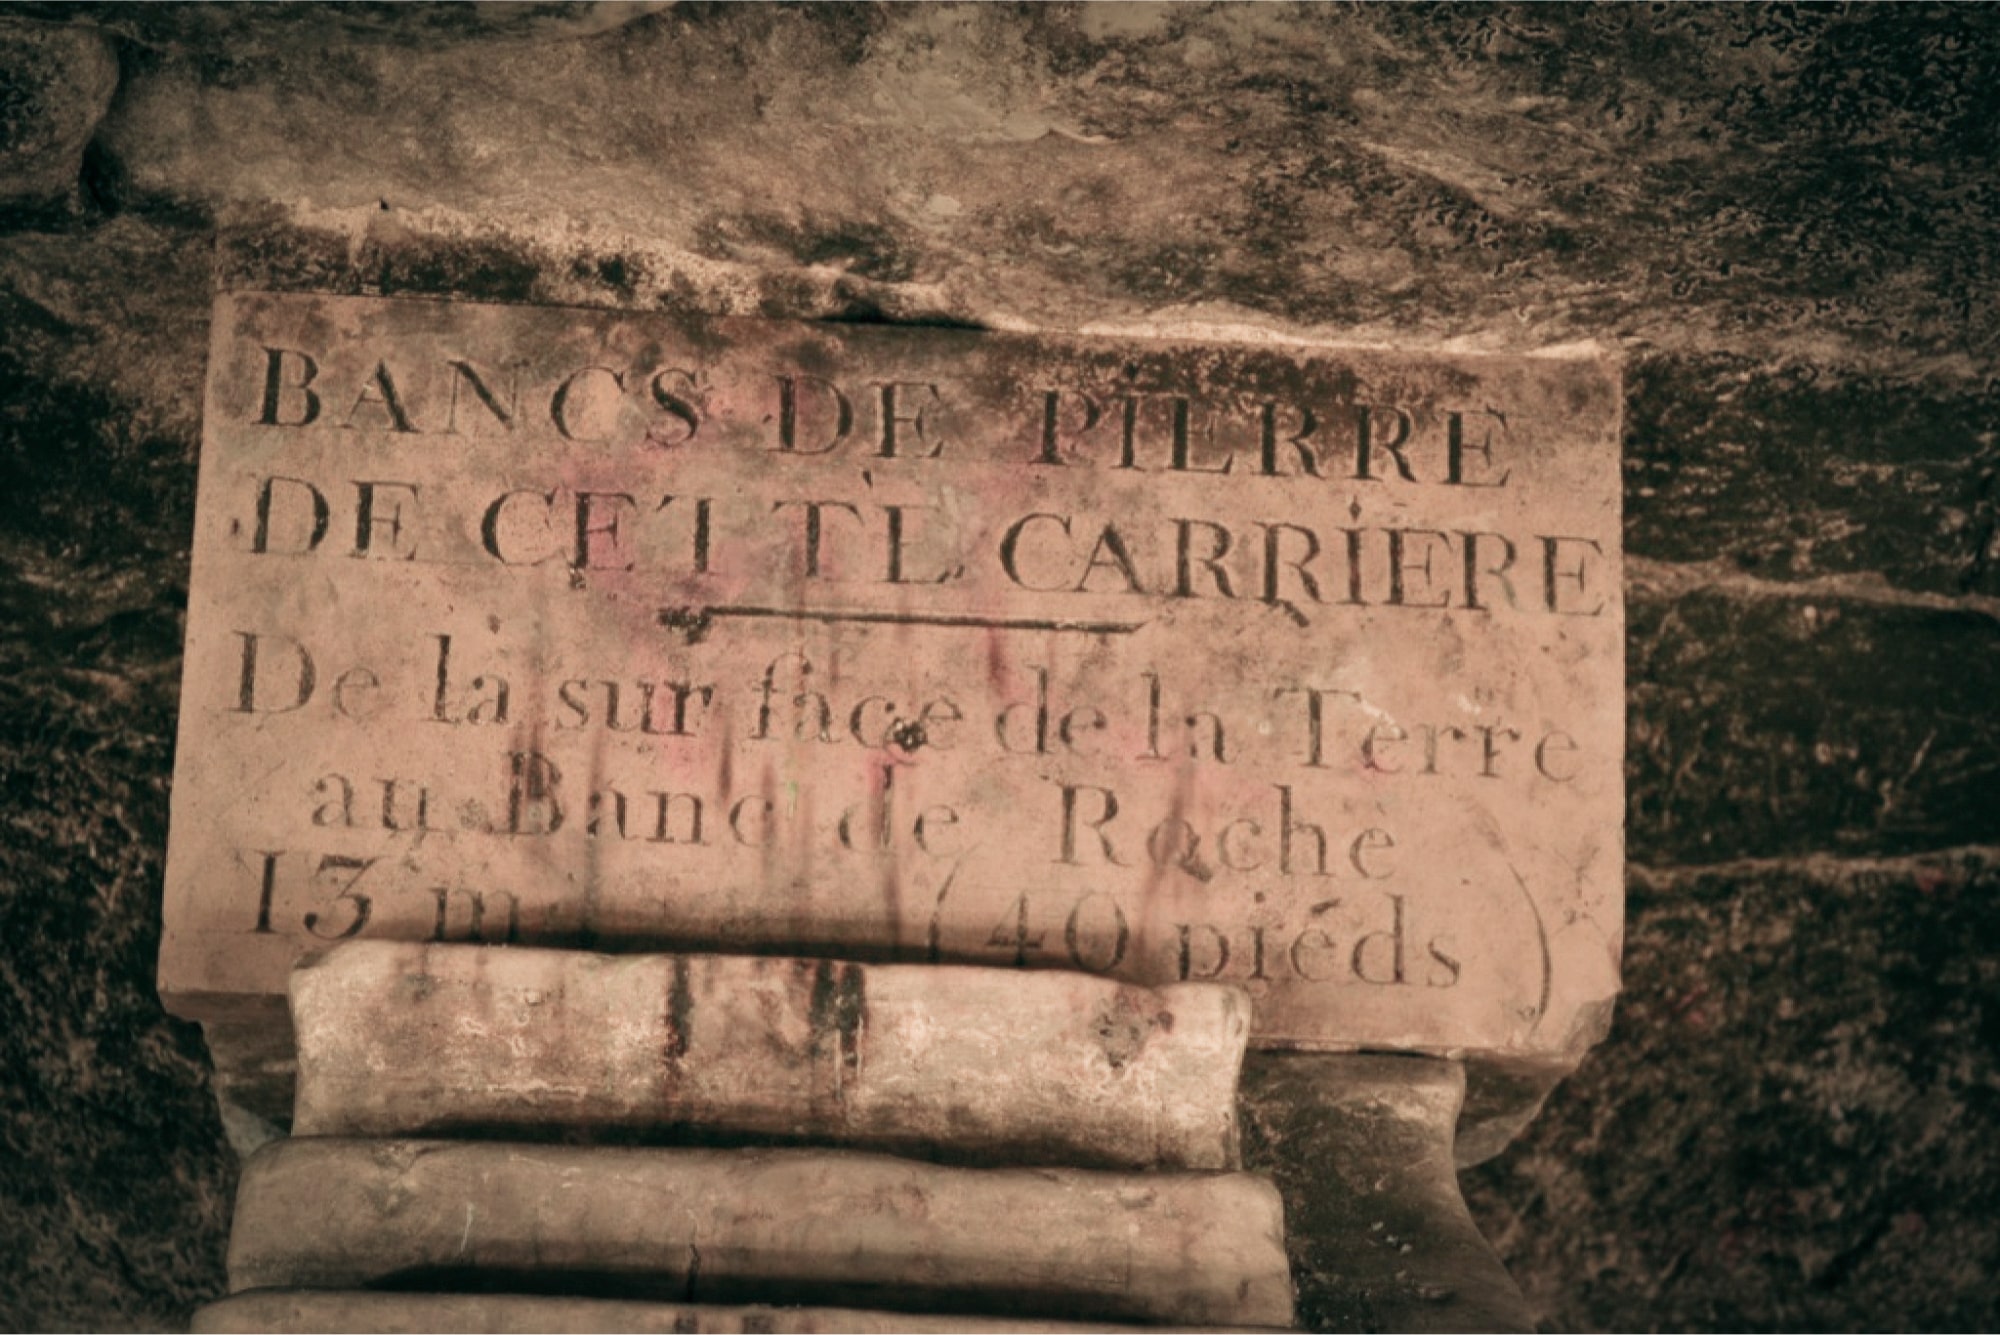 BANCS DE PIERRE
DE CETTE CARRIERE
De la surface de la Terre
au Banc de Roche
13 m (40 piéds)